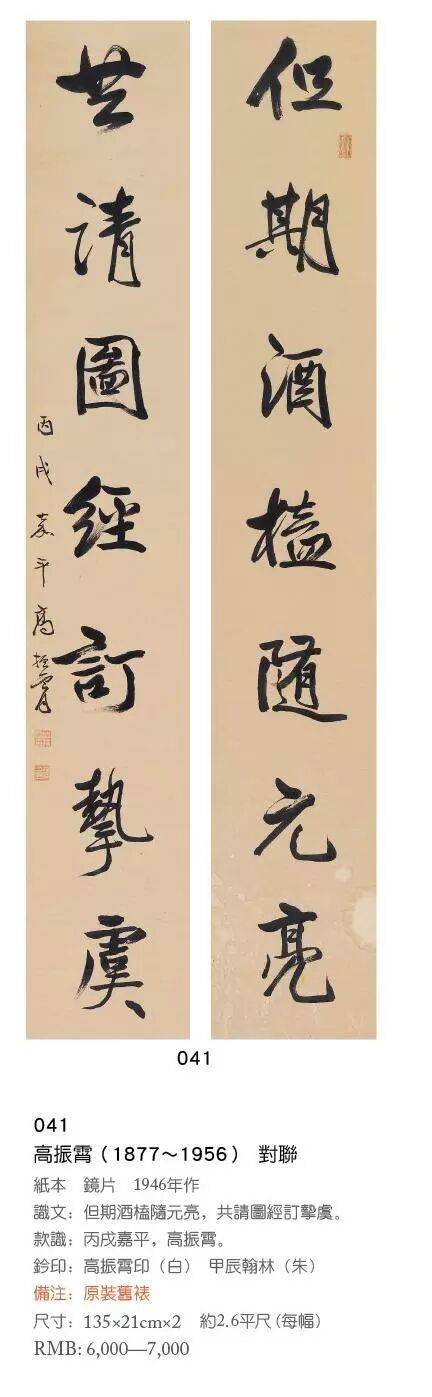 但期酒榼隨元亮
共請圖經訂摯虞
丙戌嘉平高振霄
041
041
高振霄（1877～1956） 對聯
紙本 鏡片 1946年作
識文：但期酒榼隨元亮，共請圖經訂摯虞。
款識：丙戌嘉平，高振霄。
鈐印：高振霄印（白） 甲辰翰林（朱）
備注：原裝舊裱
尺寸：135×21cm×2 約2.6平尺(每幅)
RMB: 6,000—7,000